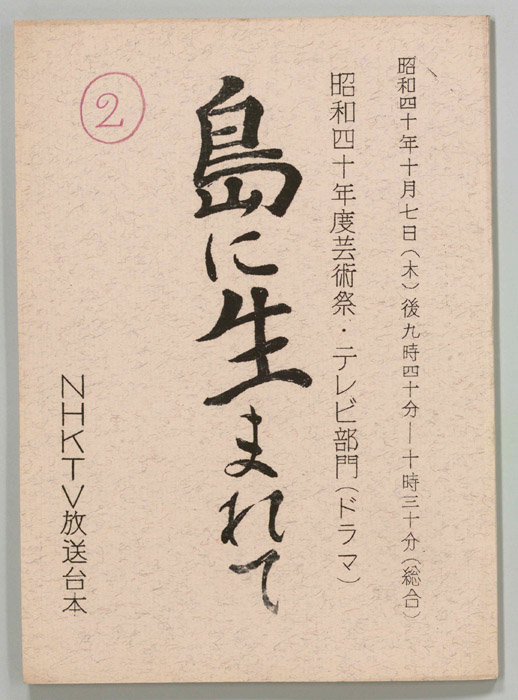 昭和四十年十月七日(木)後九時四十分―十時三十分(総合)
昭和四十年度芸術祭・テレビ部門(ドラマ)
島に生まれて
②
NHKTV放送台本